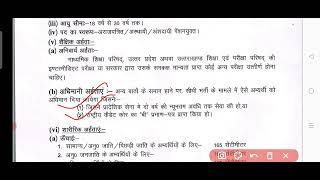 (iii) आयु सीमा:–18 वर्ष से 30 वर्ष तक।
(iv) पद का स्वरूप–अराजपत्रित/अस्थायी/अंशदायी पेंशनयुक्त।
(v) शैक्षिक अर्हता:–
(a) अनिवार्य अर्हता:–
माध्यमिक शिक्षा परिषद, उत्तर प्रदेश अथवा उत्तराखण्ड शिक्षा एवं परीक्षा परिषद की
इण्टरमीडिएट परीक्षा या सरकार द्वारा उसके समकक्ष मान्यता प्राप्त कोई अन्य परीक्षा उत्तीर्ण होना
चाहिए।
(b) अधिमानी अर्हताएं:– अन्य बातों के समान रहने पर सीधी भर्ती के मामले में ऐसे अभ्यर्थी को
अधिमान दिया जायेगा जिसने–
(1) जिसने प्रादेशिक सेना में दो वर्ष की न्यूनतम अवधि तक सेवा की हो या
(2) राष्ट्रीय कैडेट कोर का "बी" प्रमाण–पत्र प्राप्त किया हो।
(vi) शारीरिक अर्हताएं:–
(a) ऊँचाई–
1. सामान्य/अनु0 जाति/पिछड़ी जाति के अभ्यर्थियों के लिए– 165 सेंटीमीटर
2. अनु0 जनजाति के अभ्यर्थियों के लिए–